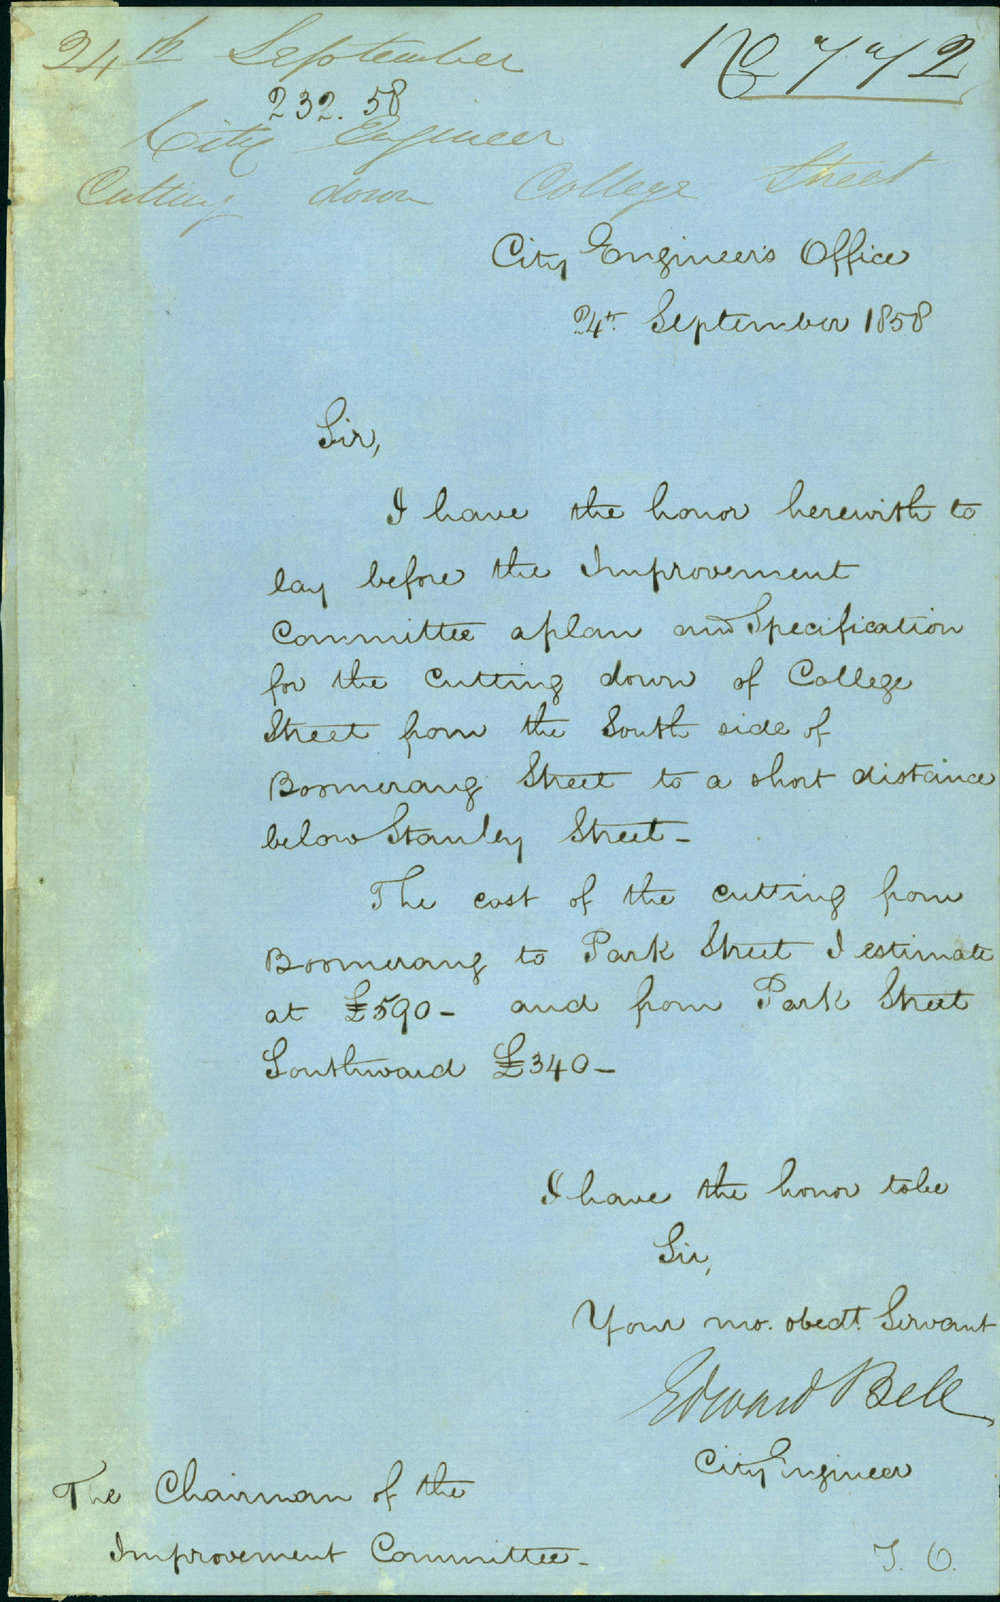 24th September
No 772
232. 58
City Engineer
Cutting down College Street
City Engineer's Office
24th September 1858
Sir,
I have the honor herewith to
lay before the Improvement
Committee a plan and Specification
for the cutting down of College
Street from the South side of
Boomerang Street to a short distance
below Stanley Street -
The cost of the cutting from
Boomerang to Park Street I estimate
at £590 - and from Park Street
Southward £340 -
I have the honor to be
Sir,
Your mo. obedt. Servant
Edward Bell
City Engineer
The Chairman of the
Improvement Committee -
T. O.